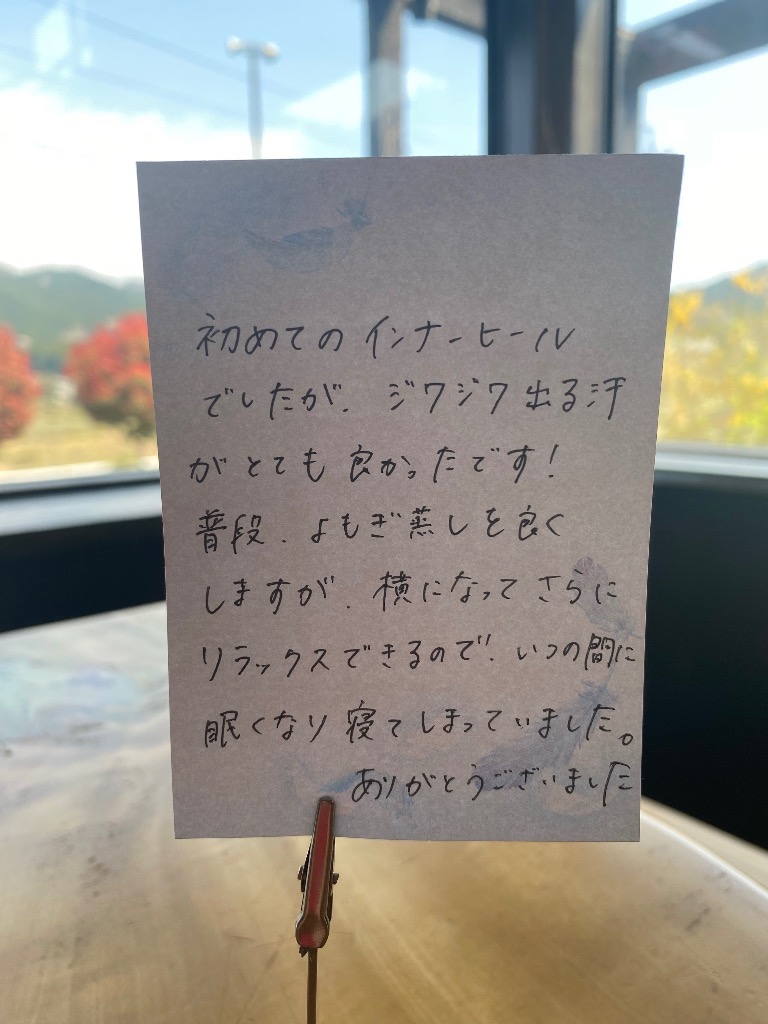 初めてのインナーヒール
でしたが、ジワジワ出る汗
がとても良かったです!
普段、よもぎ蒸しを良く
しますが、横になってさらに
リラックスできるので、いつの間に
眠くなり寝てしまっていました。
ありがとうございました